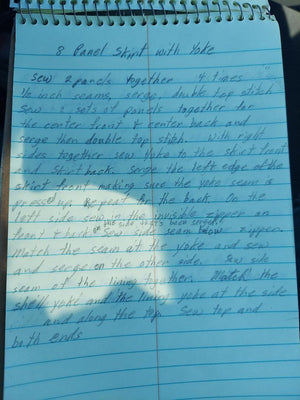 8 Panel Skirt with Yoke
Sew 2 panels together 4 times
1/2 inch seams, serge, double top stitch
Sew 2 sets of panels together for
the center front & center back and
serge then double top stitch. With right
sides together sew yoke to the skirt front
and skirt back. Serge the left edge of the
skirt front making sure the yoke seam is
pressed up. Repeat for the back. On the
left side sew in the invisible zipper on
front & back. Sew side seam below zipper.
the side that's been serged.
Match the seam at the yoke and sew
and serge on the other side. Sew side
seam of the lining together. Match the
shell yoke and the lining yoke at the side
and along the top. Sew top and
both ends